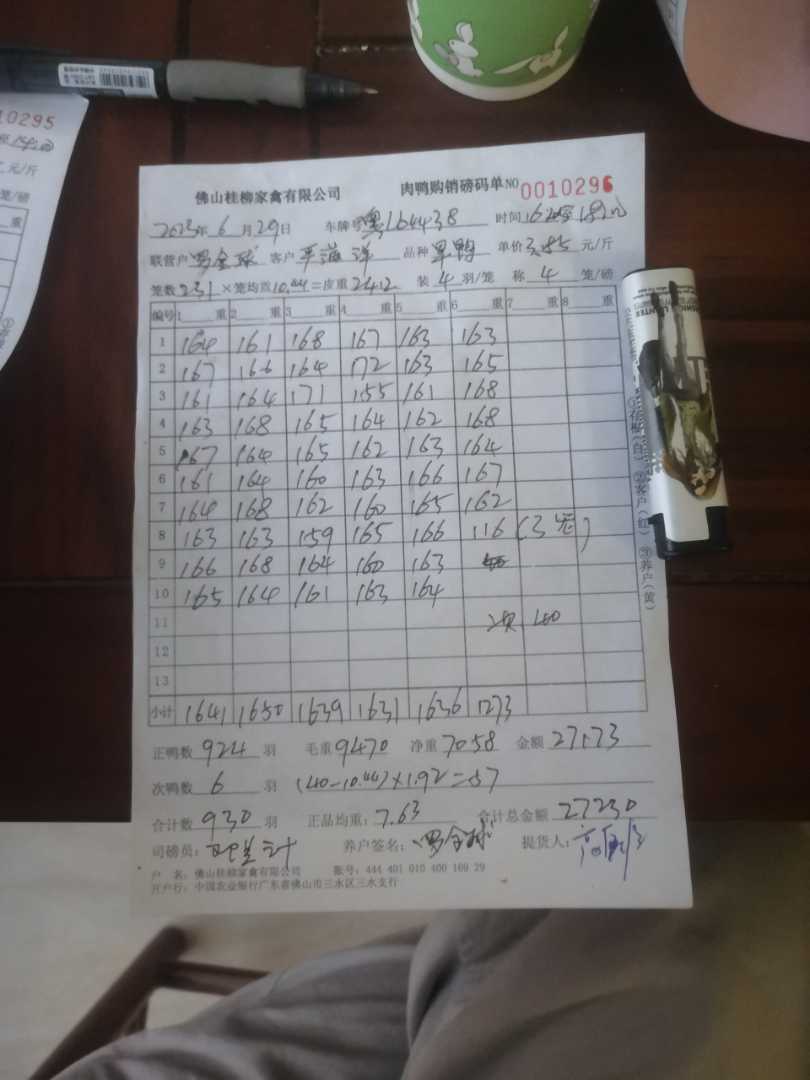 10295
元/斤
笼/磅
重
佛山桂柳家禽有限公司 肉鸭购销磅码单NO 0010296
2023年6月29日 车牌号粤 时间
联营户 罗全球 客户 品种 单鸭 单价 3.85 元/斤
笼数 231 ×笼均重 10.44 =皮重 2412 装 4 羽/笼 称 4 笼/磅
编号 1 重 2 重 3 重 4 重 5 重 6 重 7 重 8 重
1 164 161 168 167 163 163
2 167 166 164 172 163 165
3 161 164 171 155 161 168
4 163 168 165 164 162 168
5 167 164 165 162 163 164
6 161 164 160 163 166 167
7 164 168 162 160 165 162
8 163 163 159 165 166 116 (3笼)
9 166 168 164 160 163
10 165 164 161 163 164
11
12
13
小计 1641 1650 1639 1631 1636 1273
正鸭数 924 羽 毛重 9470 净重 7058 金额 27173
次鸭数 6 羽 (40-10.44)×1.92=57
合计数 930 羽 正品均重: 7.63 合计总金额 27230
司磅员: 养户签名: 罗全球 提货人:
户 名: 佛山桂柳家禽有限公司 账号: 444 401 010 400 169 29
开户行: 中国农业银行广东省佛山市三水区三水支行
①存根(白) ②客户(红) ③养户(黄)